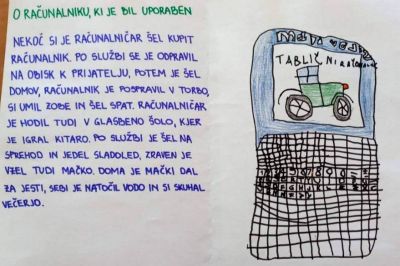 O RAČUNALNIKU, KI JE BIL UPORABEN
NEKOČ SI JE RAČUNALNIČAR ŠEL KUPIT
RAČUNALNIK. PO SLUŽBI SE JE ODPRAVIL
NA OBISK K PRIJATELJU, POTEM JE ŠEL
DOMOV, RAČUNALNIK JE POSPRAVIL V TORBO,
SI UMIL ZOBE IN ŠEL SPAT. RAČUNALNIČAR
JE HODIL TUDI V GLASBENO ŠOLO, KJER
JE IGRAL KITARO. PO SLUŽBI JE ŠEL NA
SPREHOD IN JEDEL SLADOLED, ZRAVEN JE
VZEL TUDI MAČKO. DOMA JE MAČKI DAL
ZA JESTI, SEBI JE NATOČIL VODO IN SI SKUHAL
VEČERJO.
TABLIČNI RAČUNALNIK